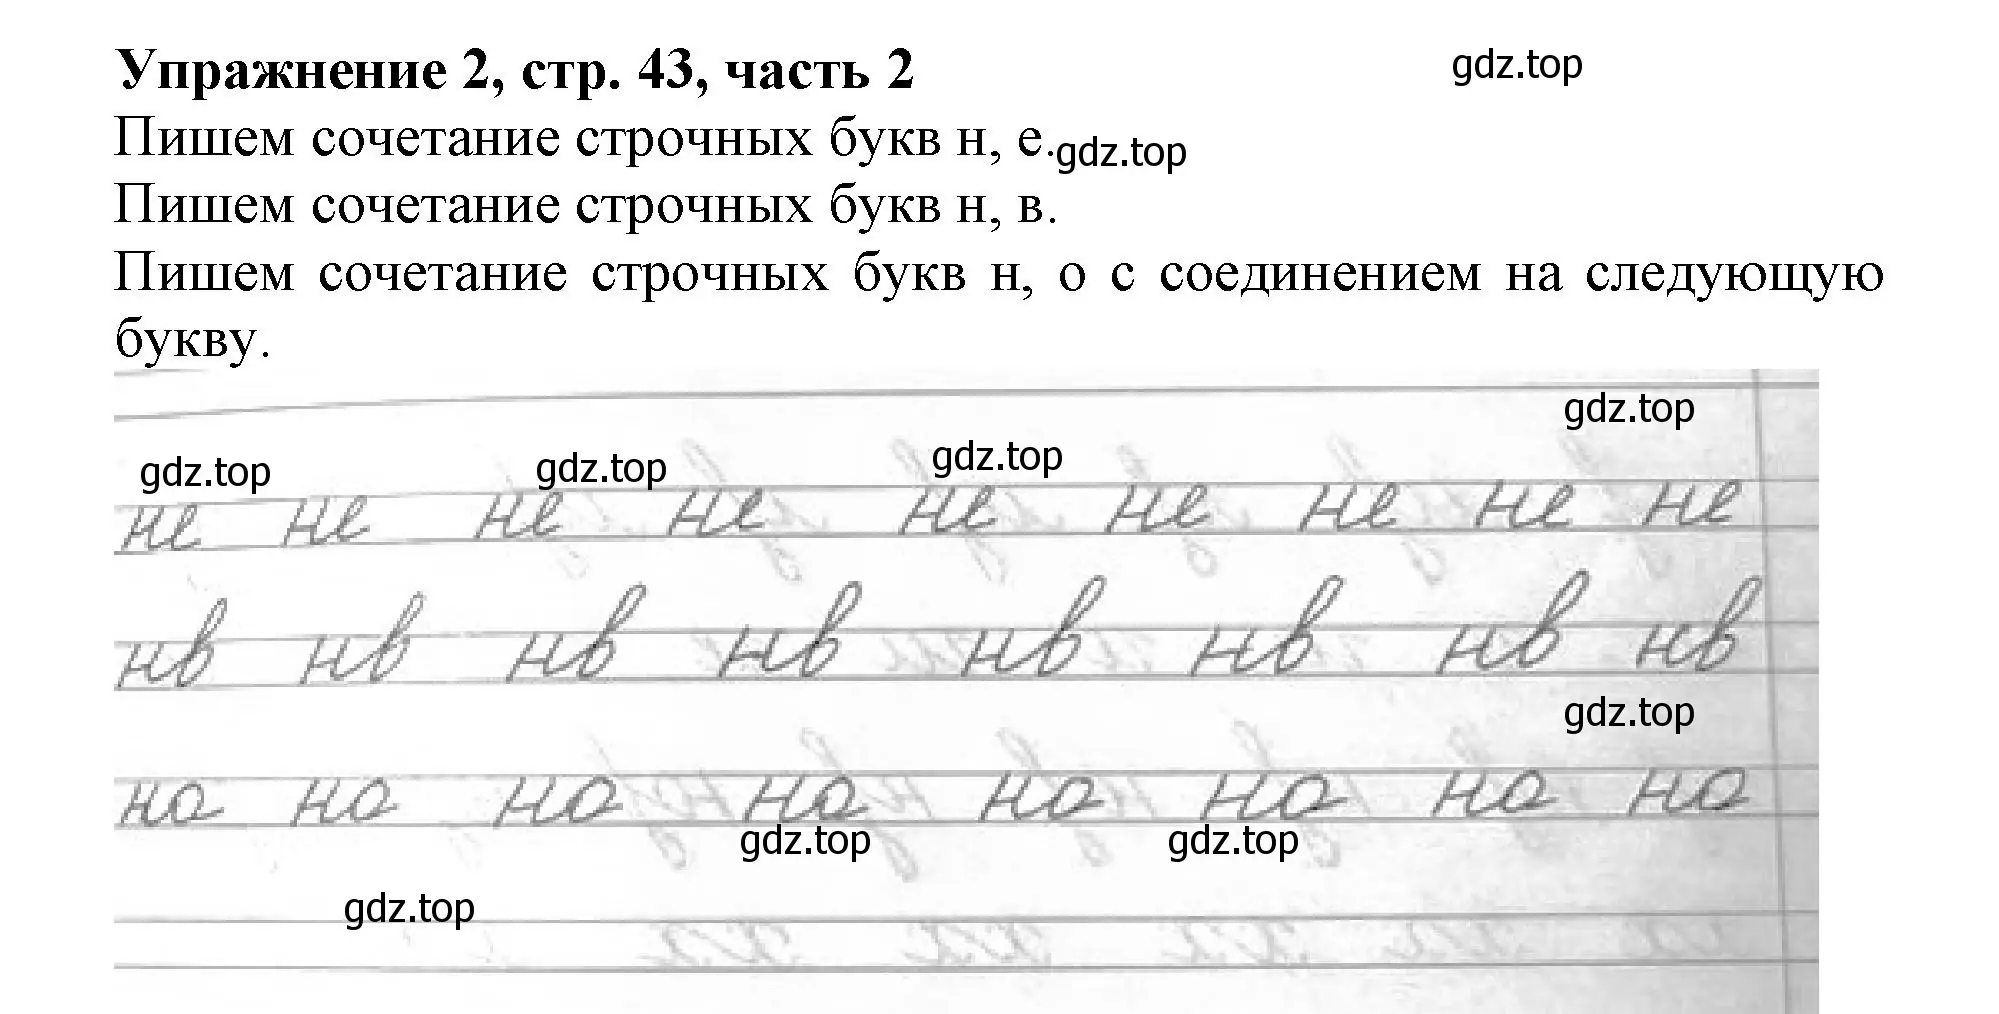 Упражнение 2, стр. 43, часть 2
gdz.top
Пишем сочетание строчных букв н, е.
gdz.top
Пишем сочетание строчных букв н, в.
Пишем сочетание строчных букв н, о с соединением на следующую
букву.
gdz.top
gdz.top gdz.top gdz.top
не не не не не не не не не
нв нв нв нв нв нв нв нв
gdz.top
но но но но но но но но
gdz.top gdz.top
gdz.top